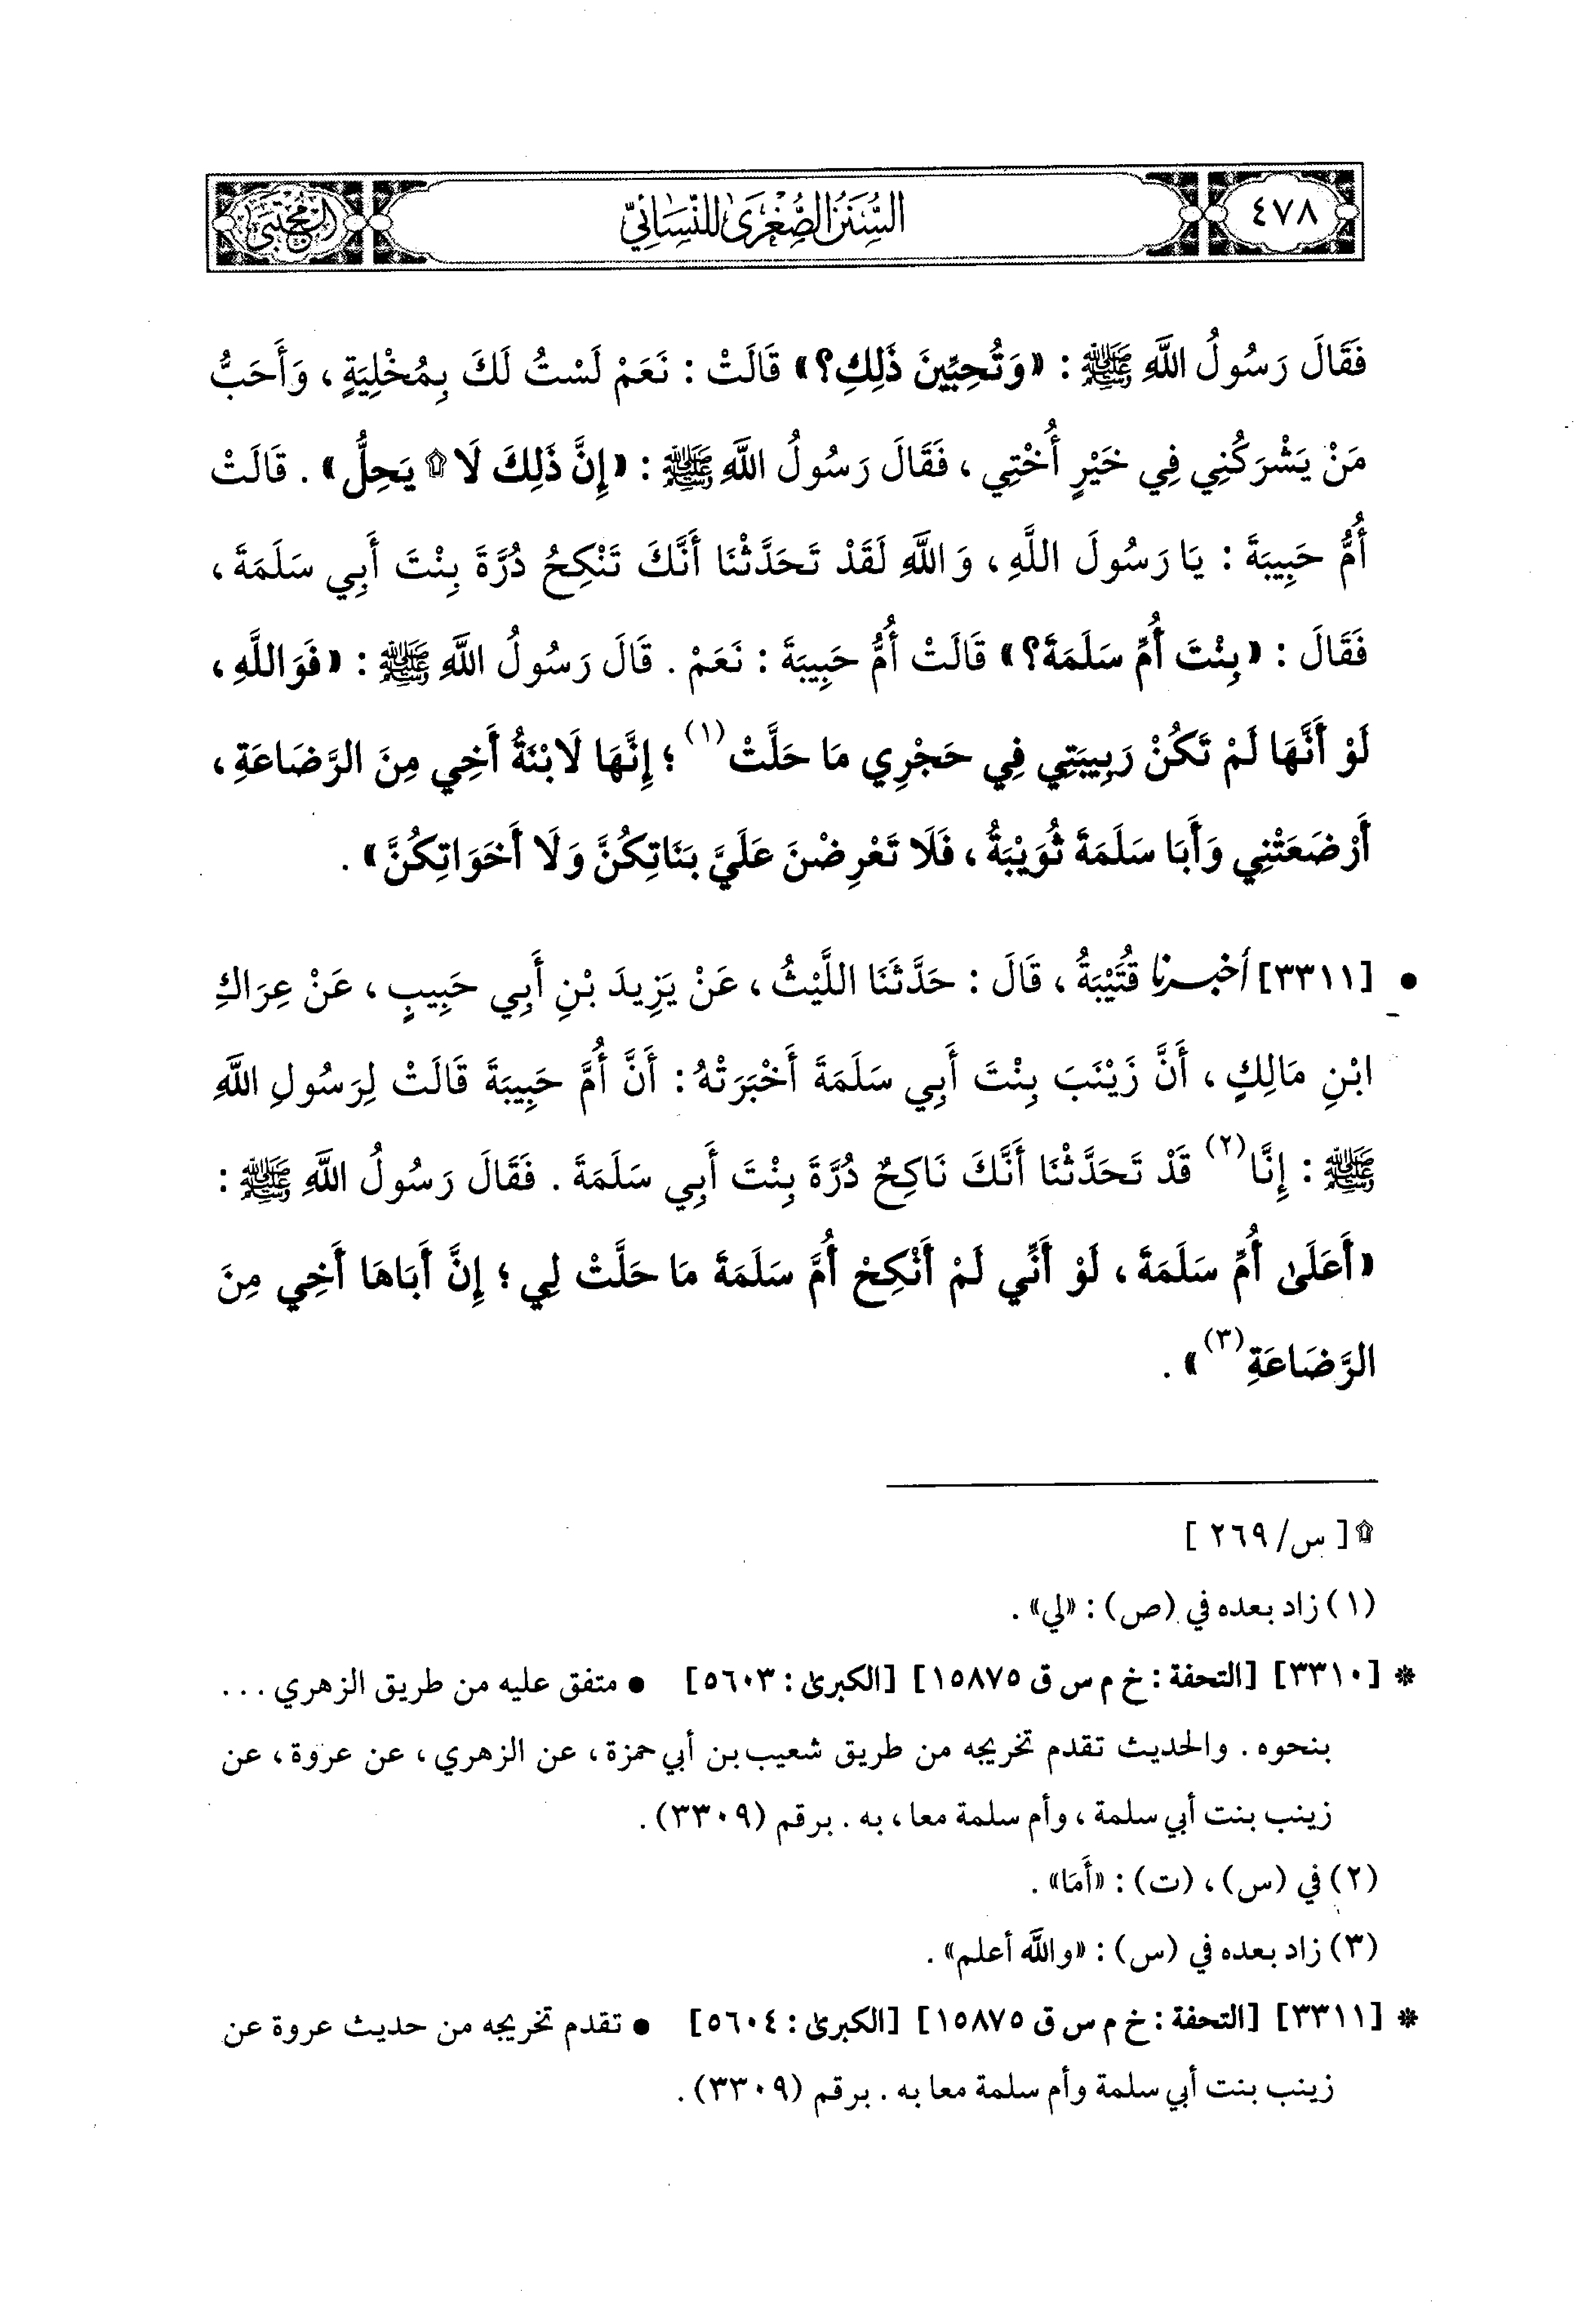 ٤٧٨
السُّنَنُ الصُّغْرَىٰ لِلنَّسَائِيِّ
المجتبى
فَقَالَ رَسُولُ اللَّهِ ﷺ : «وَتُحِبِّينَ ذَلِكِ؟» قَالَتْ : نَعَمْ لَسْتُ لَكَ بِمُخْلِيَةٍ ، وَأَحَبُّ
مَنْ يَشْرَكُنِي فِي خَيْرٍ أُخْتِي ، فَقَالَ رَسُولُ اللَّهِ ﷺ : «إِنَّ ذَلِكَ لَا ۩ يَحِلُّ» . قَالَتْ
أُمُّ حَبِيبَةَ : يَا رَسُولَ اللَّهِ ، وَاللَّهِ لَقَدْ تَحَدَّثْنَا أَنَّكَ تَنْكِحُ دُرَّةَ بِنْتَ أَبِي سَلَمَةَ ،
فَقَالَ : «بِنْتَ أُمِّ سَلَمَةَ؟» قَالَتْ أُمُّ حَبِيبَةَ : نَعَمْ . قَالَ رَسُولُ اللَّهِ ﷺ : «فَوَاللَّهِ ،
لَوْ أَنَّهَا لَمْ تَكُنْ رَبِيبَتِي فِي حَجْرِي مَا حَلَّتْ (١) ؛ إِنَّهَا لَابْنَةُ أَخِي مِنَ الرَّضَاعَةِ ،
أَرْضَعَتْنِي وَأَبَا سَلَمَةَ ثُوَيْبَةُ ، فَلَا تَعْرِضْنَ عَلَيَّ بَنَاتِكُنَّ وَلَا أَخَوَاتِكُنَّ» .
• [٣٣١١] أخبرنا قُتَيْبَةُ ، قَالَ : حَدَّثَنَا اللَّيْثُ ، عَنْ يَزِيدَ بْنِ أَبِي حَبِيبٍ ، عَنْ عِرَاكِ
ابْنِ مَالِكٍ ، أَنَّ زَيْنَبَ بِنْتَ أَبِي سَلَمَةَ أَخْبَرَتْهُ : أَنَّ أُمَّ حَبِيبَةَ قَالَتْ لِرَسُولِ اللَّهِ
ﷺ : إِنَّا (٢) قَدْ تَحَدَّثْنَا أَنَّكَ نَاكِحٌ دُرَّةَ بِنْتَ أَبِي سَلَمَةَ . فَقَالَ رَسُولُ اللَّهِ ﷺ :
«أَعَلَىٰ أُمِّ سَلَمَةَ ، لَوْ أَنِّي لَمْ أَنْكِحْ أُمَّ سَلَمَةَ مَا حَلَّتْ لِي ؛ إِنَّ أَبَاهَا أَخِي مِنَ
الرَّضَاعَةِ (٣)» .
۩ [ س/ ٢٦٩ ]
(١) زاد بعده في (ص) : «لي» .
* [٣٣١٠] [التحفة : خ م س ق ١٥٨٧٥] [الكبرىٰ : ٥٦٠٣] • متفق عليه من طريق الزهري ...
بنحوه . والحديث تقدم تخريجه من طريق شعيب بن أبي حمزة ، عن الزهري ، عن عروة ، عن
زينب بنت أبي سلمة ، وأم سلمة معا ، به . برقم (٣٣٠٩) .
(٢) في (س) ، (ت) : «أَمَا» .
(٣) زاد بعده في (س) : «واللَّه أعلم» .
* [٣٣١١] [التحفة : خ م س ق ١٥٨٧٥] [الكبرىٰ : ٥٦٠٤] • تقدم تخريجه من حديث عروة عن
زينب بنت أبي سلمة وأم سلمة معا به . برقم (٣٣٠٩) .